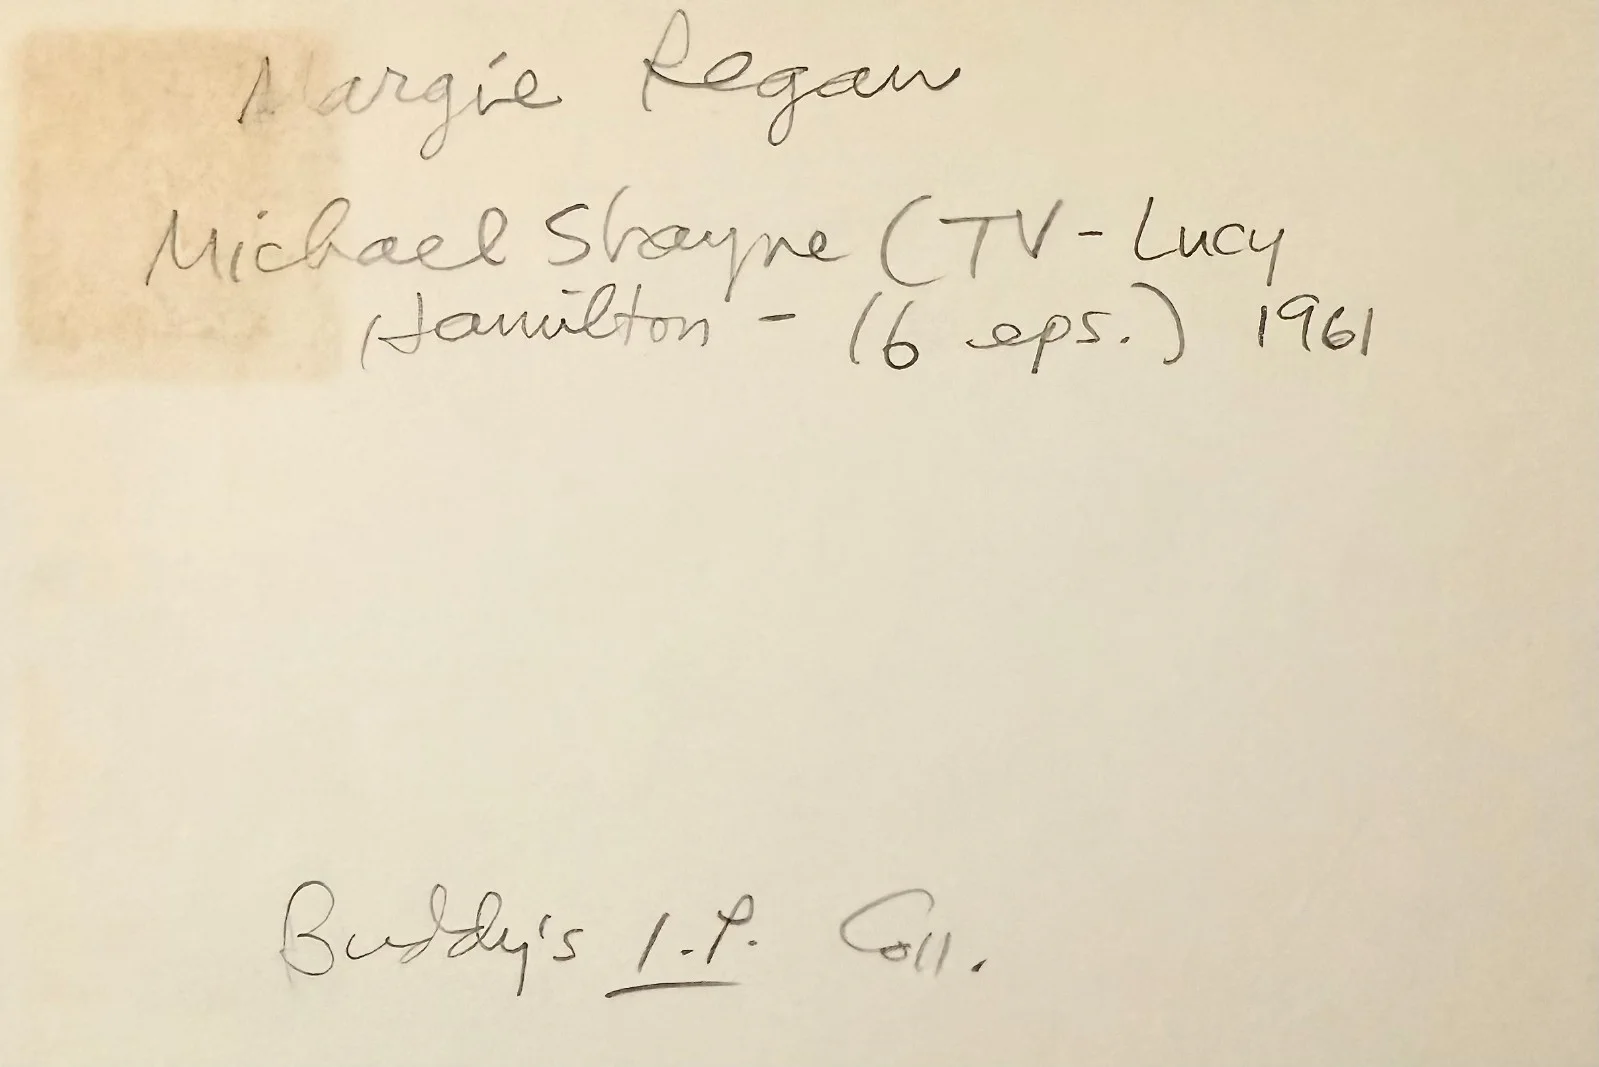 Margie Regan
Michael Shayne (TV - Lucy
Hamilton - (6 eps.) 1961
Buddy's I.P. Coll.